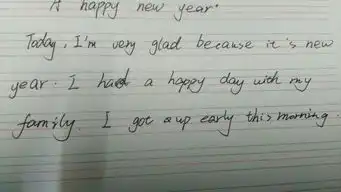 A happy new year.
Today, I'm very glad because it's new
year. I had a happy day with my
family. I got a up early this morning.